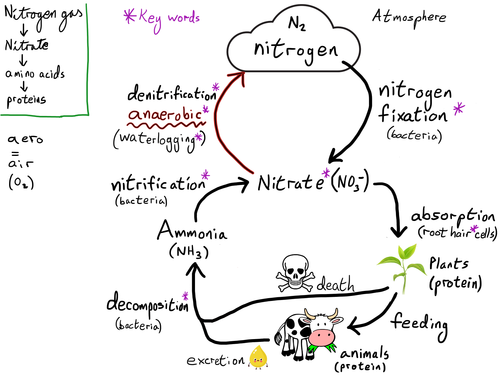 Nitrogen gas
↓
Nitrate
↓
amino acids
↓
proteins
aero
=
air
(O₂)
*Key words
Atmosphere
N₂
nitrogen
denitrification*
anaerobic*
(waterlogging*)
nitrogen
fixation*
(bacteria)
nitrification*
(bacteria)
Nitrate* (NO₃⁻)
absorption
(root hair* cells)
Ammonia
(NH₃)
Plants
(protein)
death
decomposition*
(bacteria)
feeding
excretion
animals
(protein)